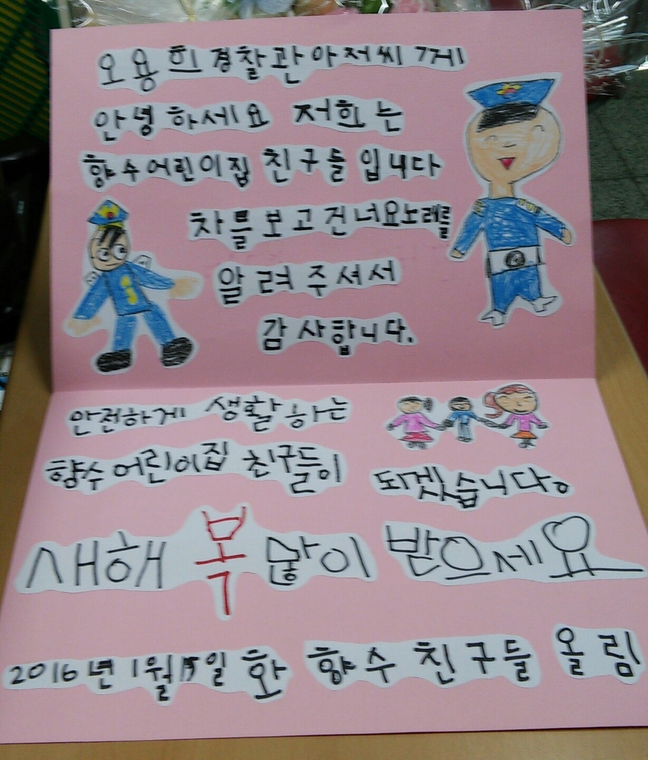 오용희 경찰관 아저씨 께
안녕하세요 저희는
향수어린이집 친구들 입니다
차를보고건너요노래를
알려주셔서
감사합니다.
안전하게 생활하는
향수어린이집 친구들이 되겠습니다.
새해 복 많이 받으세요
2016년 1월 일 화 향수 친구들 올림